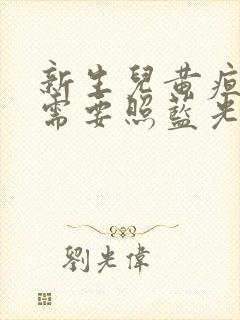 新生兒黃疸
需要照藍光
劉光偉